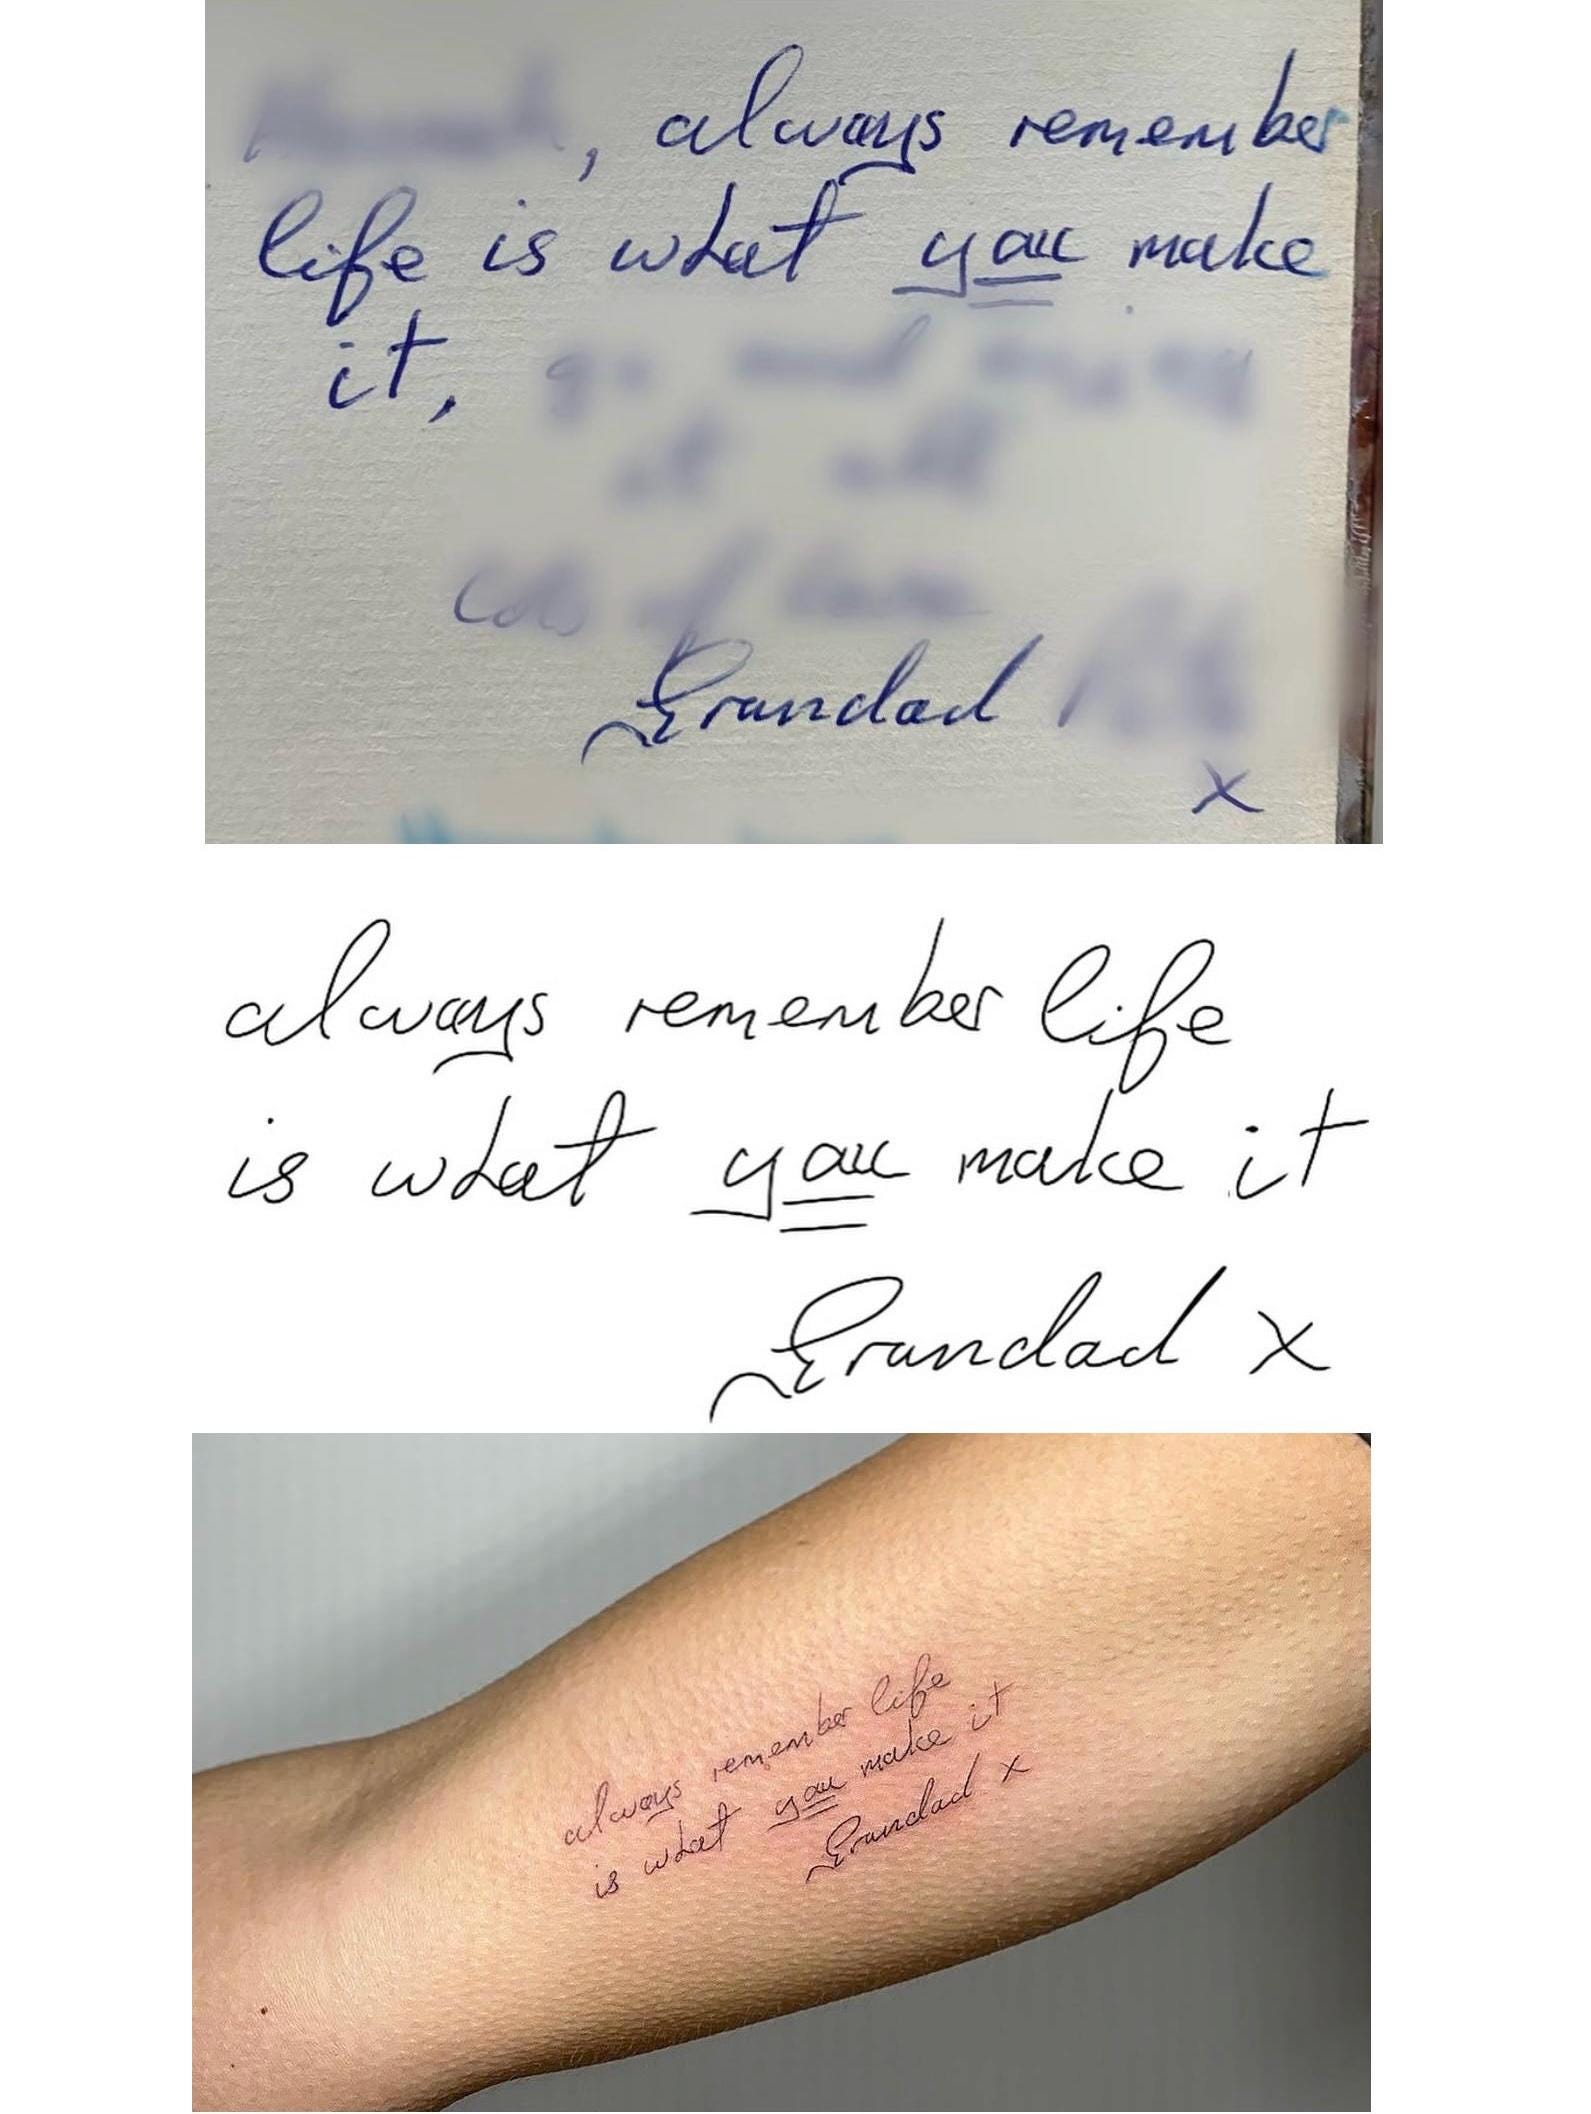 , always remember
life is what you make
it,
Grandad
x
always remember life
is what you make it
Grandad x
always remember life
is what you make it
Grandad x